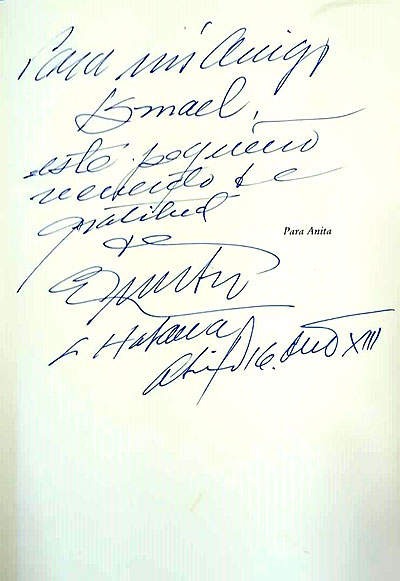 Para mi Amigo
Ismael,
este pequeño
recuerdo de
gratitud
de
Para Anita
La Habana
Abril 16. Año XIII